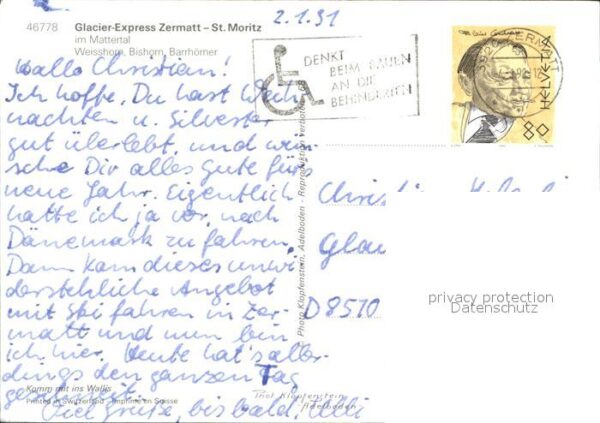 2.1.91
46778 Glacier-Express Zermatt – St. Moritz
im Mattertal
Weisshorn, Bishorn, Barrhörner
DENKT
BEIM BAUEN
AN DIE
BEHINDERTEN
HELVETIA
80
Hallo Christian!
Ich hoffe, Du hast Weih-
nachten u. Silvester
gut überlebt, und wün-
sche Dir alles gute fürs
neue Jahr. Eigentlich
hatte ich ja vor, nach
Dänemark zu fahren.
Dann kam dieses unwi-
derstehliche Angebot
mit Ski fahren in Zer-
matt und nun bin
ich hier. Heute hat's aller-
dings den ganzen Tag
geschneit.
Viel Grüße, bis bald, Ulli
Christian
Glau
D 8510
privacy protection
Datenschutz
Photo Klopfenstein, Adelboden - Reproduktion verboten
Komm mit ins Wallis
Printed in Switzerland - Imprimé en Suisse
Phot Klopfenstein
Adelboden